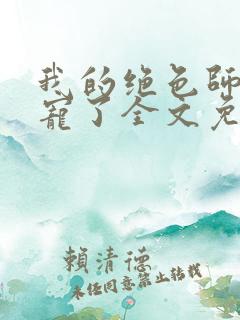 我的绝色师
宠了全文免
賴清德
未经同意禁止转载